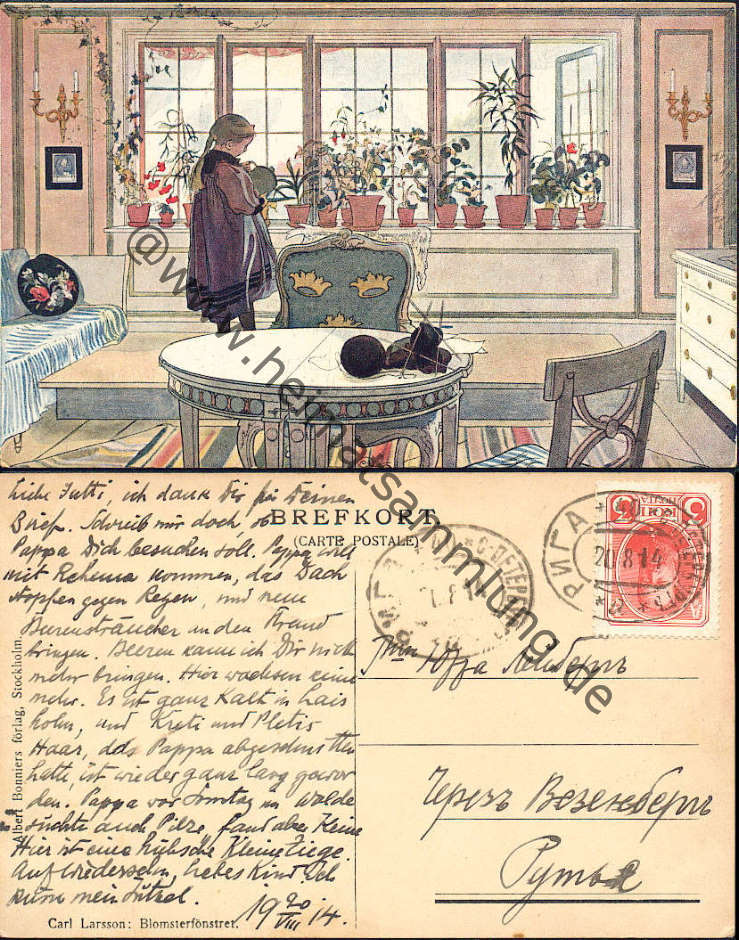 @www.heimatsammlung.de
Liebe Jutti, ich dank Dir für Deinen
Brief. Schreib mir doch, ob
Pappa Dich besuchen soll. Pappa will
mit Rehema kommen, das Dach
stopfen gegen Regen, und neue
Beerensträucher an den Strand
bringen. Beeren kann ich Dir nicht
mehr bringen. Hier wachsen keine
mehr. Es ist ganz kalt in Lais
holm, und Kreti und Pletis
Haar, das Pappa abgeschnitten
hatte, ist wieder ganz lang gewor
den. Pappa war Sonntag im Walde
suchte auch Pilze, fand aber keine
Hier ist eine hübsche kleine Ziege.
Auf Wiedersehn, liebes Kind
mein
19 20/VIII 14.
BREFKORT.
(CARTE POSTALE)
РИГА
20 8 14
5 КОП 5
ПОЧТА
С.ПЕТЕРБ
Черезъ Везенбергъ
Albert Bonniers förlag, Stockholm.
Carl Larsson: Blomsterfönstret.